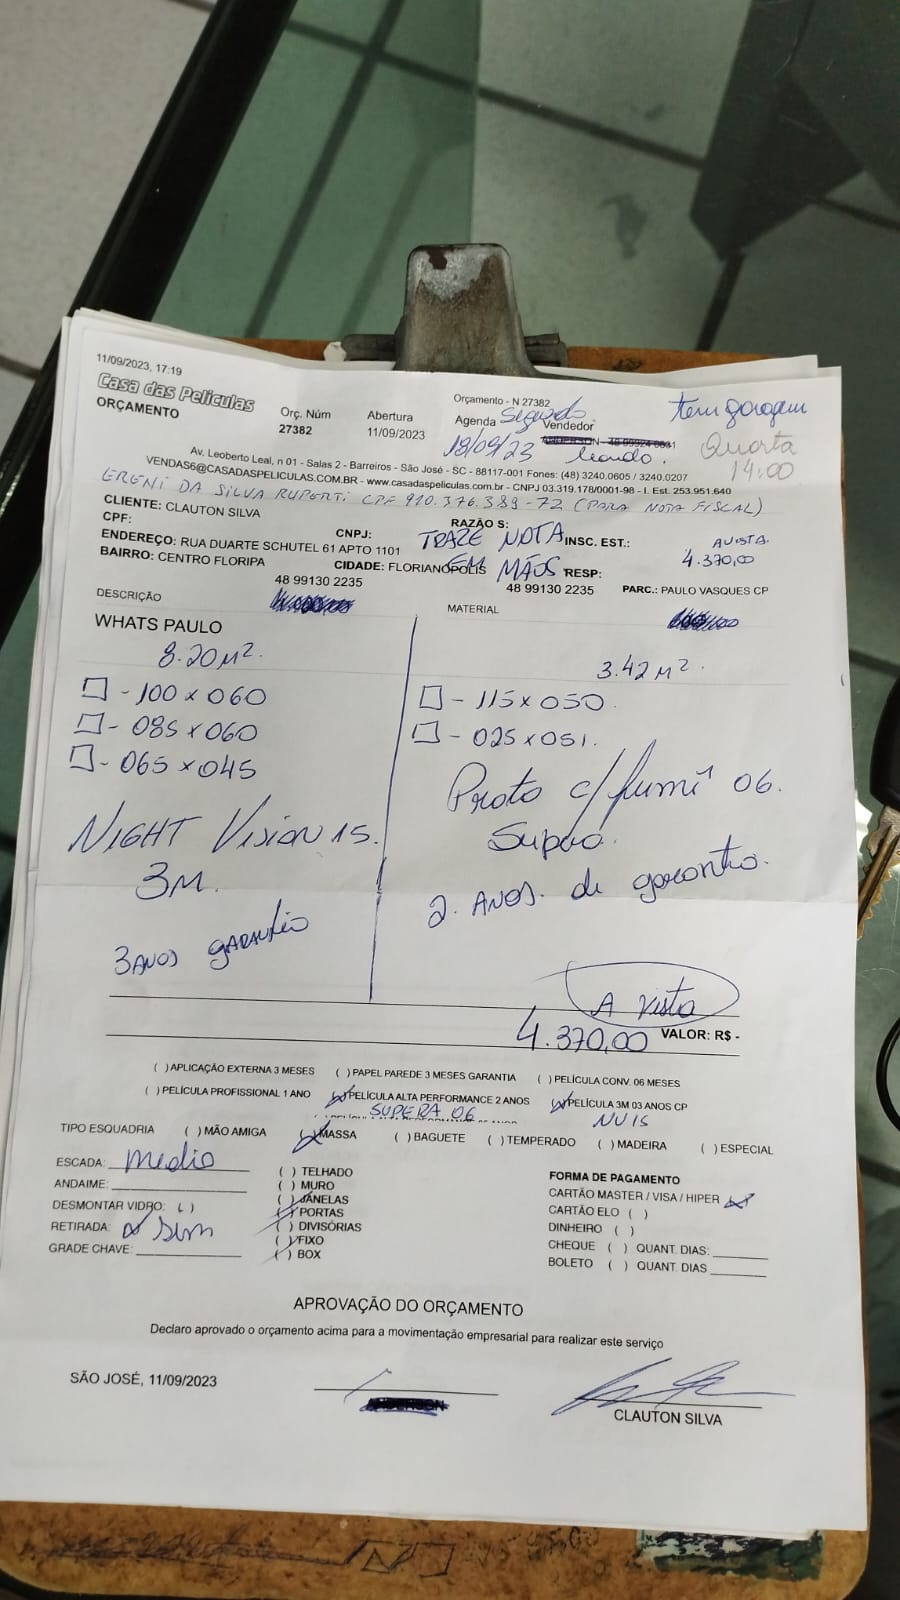 11/09/2023, 17:19
Casa das Películas
ORÇAMENTO
Orç. Núm
27382
Abertura
11/09/2023
Orçamento - N 27382
Agenda Segunda
18/09/23
Vendedor
Tem garagem
Quarta
14:00
Av. Leoberto Leal, n 01 - Salas 2 - Barreiros - São José - SC - 88117-001 Fones: (48) 3240.0605 / 3240.0207
VENDAS6@CASADASPELICULAS.COM.BR - www.casadaspeliculas.com.br - CNPJ 03.319.178/0001-98 - I. Est. 253.951.640
ERENI DA SILVA RUPERTI CPF 910.376.389-72 (PARA NOTA FISCAL)
CLIENTE: CLAUTON SILVA
RAZÃO S:
CPF:
CNPJ:
TRAZE NOTA
INSC. EST.:
AVISTA.
4.370,00
ENDEREÇO: RUA DUARTE SCHUTEL 61 APTO 1101
CIDADE: FLORIANÓPOLIS
EM MÃOS
RESP:
BAIRRO: CENTRO FLORIPA
48 99130 2235
48 99130 2235
PARC.: PAULO VASQUES CP
DESCRIÇÃO
MATERIAL
WHATS PAULO
8.20 M².
- 100 x 060
- 085 x 060
- 065 x 045
NIGHT VISION 15.
3M.
3 ANOS GARANTIA
3.42 M².
- 115 x 050.
- 025 x 051.
Prata c/ fumê 06.
2. ANOS. de garantia.
A Vista
4.370,00 VALOR: R$ -
( ) APLICAÇÃO EXTERNA 3 MESES ( ) PAPEL PAREDE 3 MESES GARANTIA ( ) PELÍCULA CONV. 06 MESES
( ) PELÍCULA PROFISSIONAL 1 ANO PELÍCULA ALTA PERFORMANCE 2 ANOS PELÍCULA 3M 03 ANOS CP
SUPERA 06 NV 15
TIPO ESQUADRIA ( ) MÃO AMIGA ( ) MASSA ( ) BAGUETE ( ) TEMPERADO ( ) MADEIRA ( ) ESPECIAL
ESCADA: Medio
ANDAIME:
DESMONTAR VIDRO: ( )
RETIRADA: Sim
GRADE CHAVE:
( ) TELHADO
( ) MURO
( ) JANELAS
( ) PORTAS
( ) DIVISÓRIAS
( ) FIXO
( ) BOX
FORMA DE PAGAMENTO
CARTÃO MASTER / VISA / HIPER
CARTÃO ELO ( )
DINHEIRO ( )
CHEQUE ( ) QUANT. DIAS:
BOLETO ( ) QUANT. DIAS
APROVAÇÃO DO ORÇAMENTO
Declaro aprovado o orçamento acima para a movimentação empresarial para realizar este serviço
SÃO JOSÉ, 11/09/2023
CLAUTON SILVA